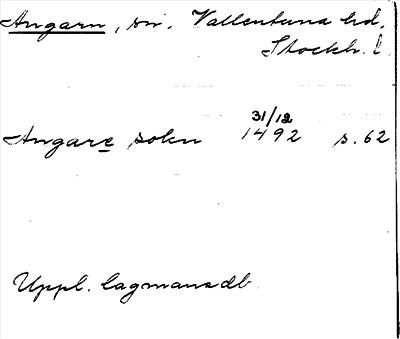 Angarn, sn. Vallentuna hd.
Stockh. l.
31/12
Angare sokn 1492 s. 62
Uppl. lagmansdb.